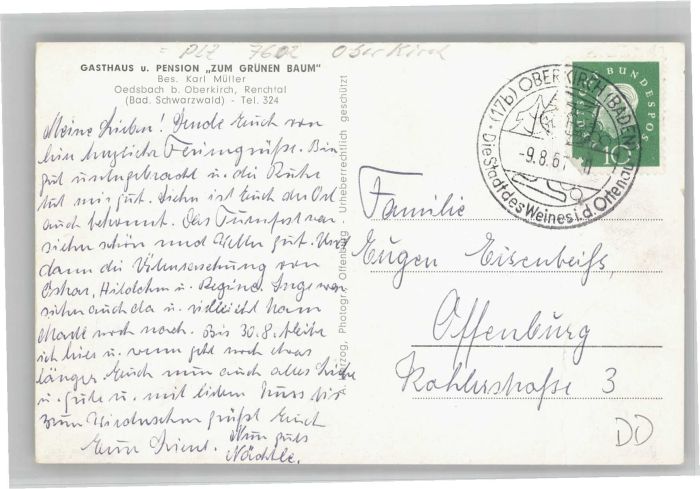 = PLZ 7602 Oberkirch
GASTHAUS u. PENSION „ZUM GRÜNEN BAUM"
Bes. Karl Müller
Oedsbach b. Oberkirch, Renchtal
(Bad. Schwarzwald) - Tel. 324
Meine Lieben! Sende Euch von
hier herzliche Feriengrüße. Bin
gut untergebracht u. die Ruhe
tut mir gut. ist Euch der Ort
auch bekannt. Das war
sicher schön und gut. Und
dann die von
Oskar, Hildchen u. Regine. Inge war
sicher auch da u. vielleicht kam
noch nach. Bis 30.8. bleibe
ich hier u. wenn geht noch etwas
länger. Euch nun auch alles Liebe
u. Gute u. mit lieben bis
zum Wiedersehn grüßt Euch
Eure
Familie
Eugen Eisenbeiß,
Offenburg
Kohlerstraße 3
Herzog, Photogr., Offenburg - Urheberrechtlich geschützt
(17b) OBERKIRCH (BADEN)
-9.8.61
Die Stadt des Weines i. d. Ortenau
DEUTSCHE BUNDESPOST
10
DD